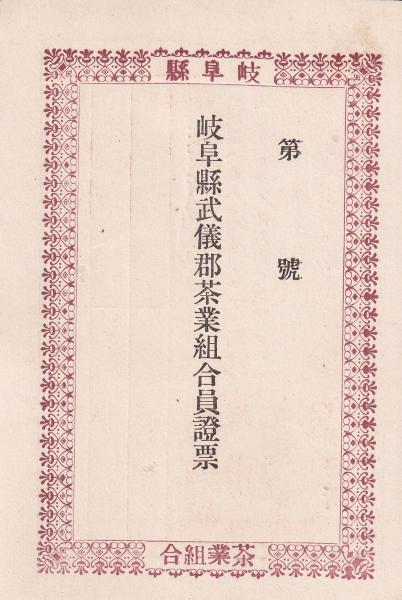 岐阜縣
第 號
岐阜縣武儀郡茶業組合員證票
茶業組合